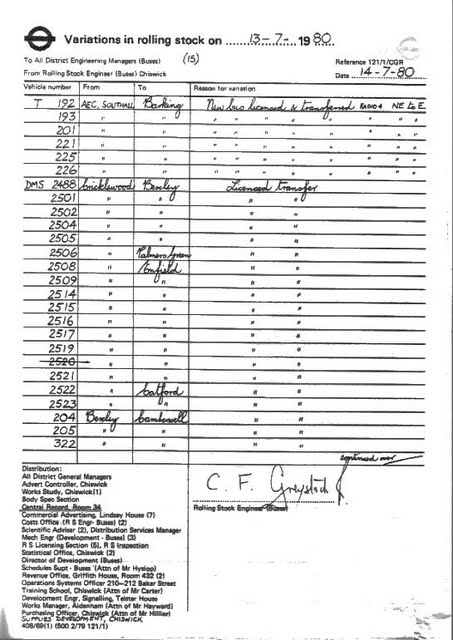 Variations in rolling stock on 13-7- 1980
To All District Engineering Managers (Buses) (15)
Reference 121/1/CGR
From Rolling Stock Engineer (Buses) Chiswick
Date 14-7-80
Vehicle number From To Reason for variation
T 192 AEC, SOUTHALL Barking New bus licensed & transferred RADIO 4 NE to E.
193 " " " " " " " " " "
201 " " " " " " " " " "
221 " " " " " " " " " "
225 " " " " " " " " " "
226 " " " " " " " " " "
DMS 2488 Cricklewood Bexley Licensed transfer
2501 " " " "
2502 " " " "
2504 " " " "
2505 " " " "
2506 " Palmers Green " "
2508 " Enfield " "
2509 " " " "
2514 " " " "
2515 " " " "
2516 " " " "
2517 " " " "
2519 " " " "
2520 " " " "
2521 " " " "
2522 " Catford " "
2523 " " " "
204 Bexley Camberwell " "
205 " " " "
322 " " " "
continued over
Distribution:
All District General Managers
Advert Controller, Chiswick
Works Study, Chiswick (1)
Body Spec Section
Central Record, Room 34
Commercial Advertising, Lindsay House (7)
Costs Office (R S Engr- Buses) (2)
Scientific Adviser (2), Distribution Services Manager
Mech Engr (Development - Buses) (3)
R S Licensing Section (5), R S Inspection
Statistical Office, Chiswick (2)
Director of Development (Buses)
Schedules Supt - Buses (Attn of Mr Hyslop)
Revenue Office, Griffith House, Room 432 (2)
Operations Systems Officer 210–212 Baker Street
Training School, Chiswick (Attn of Mr Carter)
Development Engr, Signalling, Telstar House
Works Manager, Aldenham (Attn of Mr Hayward)
Purchasing Officer, Chiswick (Attn of Mr Hillier)
SUPPLIES DEVELOPMENT, CHISWICK
408/69(1) (500 2/79 121/1)
C. F. Greystock
Rolling Stock Engineer (Buses)